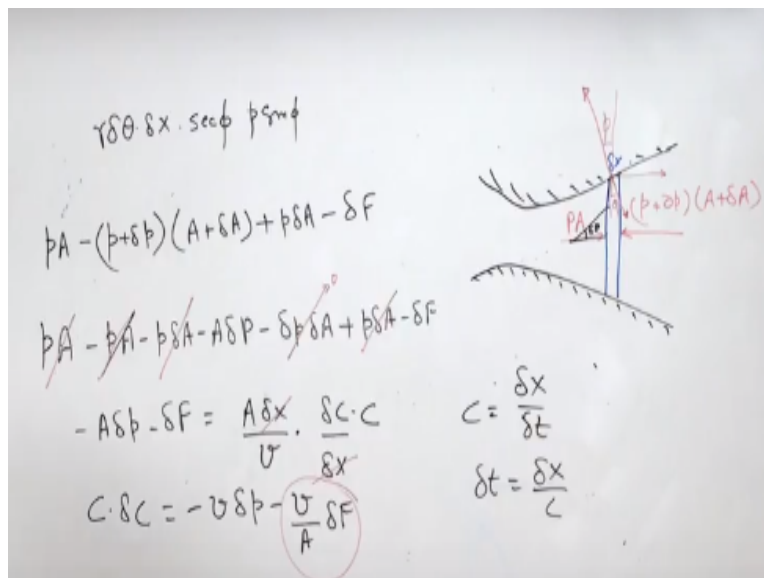 rδθ.δx.secϕ p sinϕ
pA - (p+δp)(A+δA) + pδA - δF
pA - pA - pδA - Aδp - δpδA + pδA - δF
0
-Aδp - δF = Aδx/v . δc.c/δx
c.δc = -vδp - v/A δF
δx
PA
(p+δp)(A+δA)
c = δx/δt
δt = δx/c